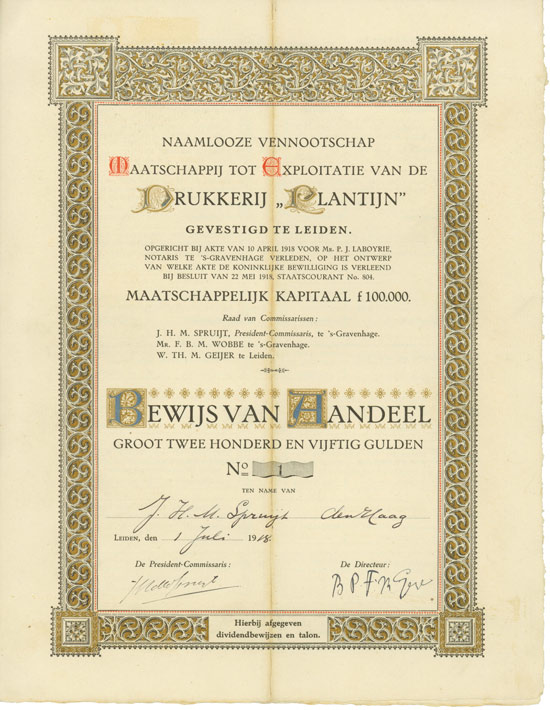 NAAMLOOZE VENNOOTSCHAP
MAATSCHAPPIJ TOT EXPLOITATIE VAN DE
DRUKKERIJ „PLANTIJN”
GEVESTIGD TE LEIDEN.
OPGERICHT BIJ AKTE VAN 10 APRIL 1918 VOOR MR. P. J. LABOYRIE,
NOTARIS TE 'S-GRAVENHAGE VERLEDEN, OP HET ONTWERP
VAN WELKE AKTE DE KONINKLIJKE BEWILLIGING IS VERLEEND
BIJ BESLUIT VAN 22 MEI 1918, STAATSCOURANT No. 804.
MAATSCHAPPELIJK KAPITAAL f 100.000.
Raad van Commissarissen:
J. H. M. SPRUIJT, President-Commissaris, te 's-Gravenhage.
MR. F. B. M. WOBBE te 's-Gravenhage.
W. TH. M. GEIJER te Leiden.
BEWIJS VAN AANDEEL
GROOT TWEE HONDERD EN VIJFTIG GULDEN
No 1
TEN NAME VAN
J. H. M. Spruijt den Haag
LEIDEN, den 1 Juli 1918.
De President-Commissaris: De Directeur:
Hierbij afgegeven
dividendbewijzen en talon.